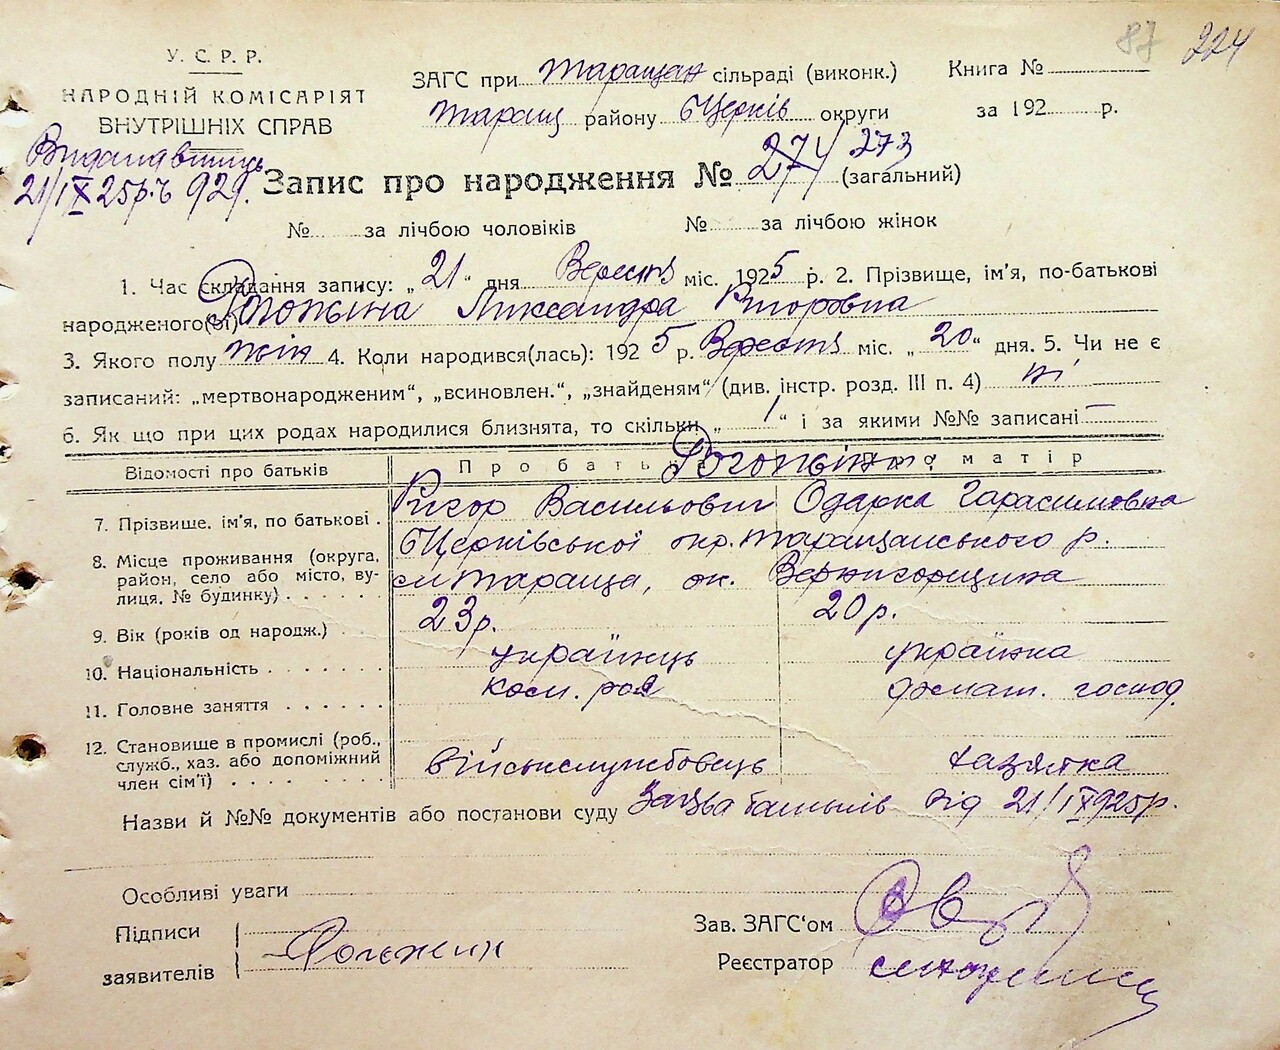 87 224
У. С. Р. Р.
НАРОДНІЙ КОМІСАРІЯТ
ВНУТРІШНІХ СПРАВ
ЗАГС при Таращан сільраді (виконк.)
Таращ району БЦерків округи
Книга №
за 192 р.
21/IX 25р. ч 929.
Запис про народження № 274 273 (загальний)
№ за лічбою чоловіків № за лічбою жінок
1. Час складання запису: „21“ дня Вересня міс. 1925 р. 2. Прізвище, ім'я, по-батькові
народженого(ої) Лиександра Григоровна
3. Якого полу жін 4. Коли народився(лась): 1925 р. Вересня міс. „20“ дня. 5. Чи не є
записаний: „мертвонародженим“, „всиновлен.“, „знайденям“ (див. інстр. розд. III п. 4) ні
6. Як що при цих родах народилися близнята, то скільки „1“ і за якими №№ записані —
Відомості про батьків
Про бать матір
7. Прізвище, ім'я, по батькові . Григор Васильович Одарка Гарасимовна
8. Місце проживання (округа, район, село або місто, вулиця, № будинку) . . . . . БЦерківської окр. Таращанського р.
м Тараща, ок. Вернигорщина
9. Вік (років од народж.) . . 23р. 20р.
10. Національність . . . . . . українець українка
11. Головне заняття . . . . . домат. господ.
12. Становище в промислі (роб., служб., хаз. або допоміжний член сім'ї) . . . . . . . військслужбовець хазяйка
Назви й №№ документів або постанови суду Заява батьків від 21/IX 925р.
Особливі уваги
Підписи
заявителів
Зав. ЗАГС'ом
Реєстратор